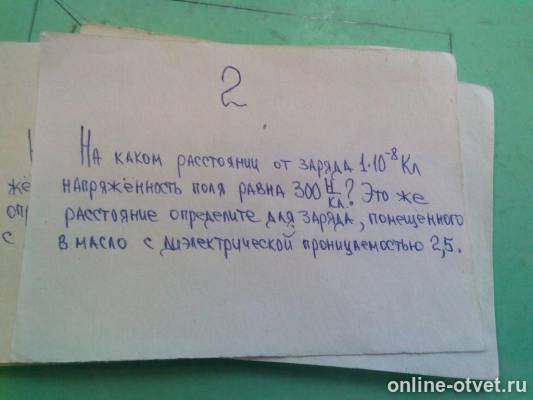 2
На каком расстоянии от заряда 1·10⁻⁸ Кл
напряжённость поля равна 300 Н/Кл? Это же
расстояние определите для заряда, помещённого
в масло с диэлектрической проницаемостью 2,5.
с
online-otvet.ru